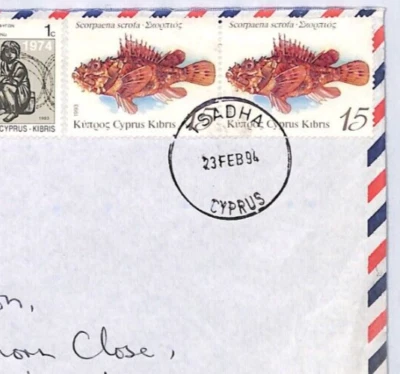 1c
1974
CYPRUS-KIBRIS
Scorpaena scrofa - Σκορπιός
1993
Κύπρος Cyprus Kıbrıs
Scorpaena scrofa - Σκορπιός
Κύπρος Cyprus Kıbrıs 15
TSADHA
23 FEB 94
CYPRUS
Close,